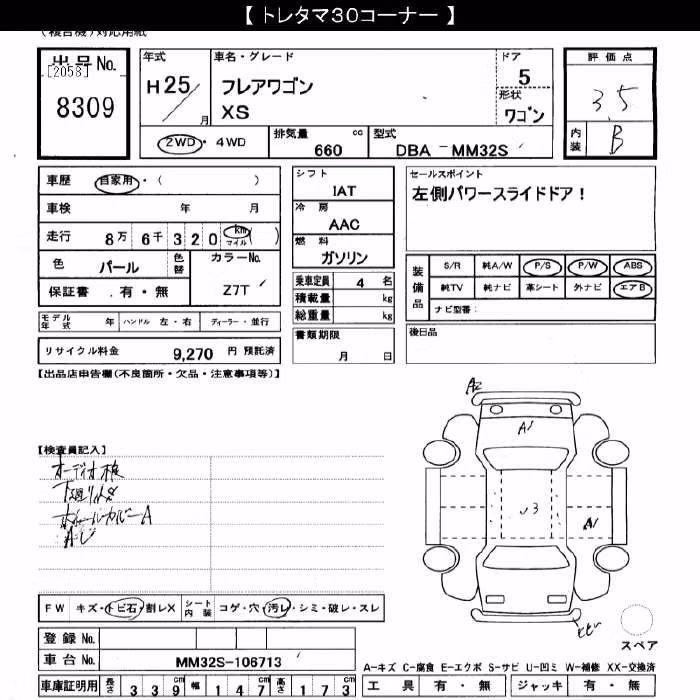 【 トレタマ30コーナー 】
(複合機)対応用紙
出品No.
[2058]
8309
年式
H25/
月
車名・グレード
フレアワゴン
XS
ドア
5
形状
ワゴン
評価点
3.5
内装
B
2WD・4WD
排気量
cc
660
型式
DBA - MM32S
車歴
自家用・( )
車検
年 月
走行
8万 6千 3 2 0 km マイル ( )
色
パール
色替
カラーNo.
Z7T
保証書 . 有・無
モデル年式 年
ハンドル 左・右
ディーラー・並行
リサイクル料金 9,270 円 預託済
シフト
IAT
冷房
AAC
燃料
ガソリン
乗車定員 4 名
積載量 kg
総重量 kg
書類期限
月 日
セールスポイント
左側パワースライドドア!
装備品
S/R 純A/W P/S P/W ABS
純TV 純ナビ 革シート 外ナビ エアB
ナビ型番:
後日品
【出品店申告欄(不良箇所・欠品・注意事項等)】
【検査員記入】
オーディオ検
ホイールカバーA
A2
A1
A1
FW キズ・トビ石・割レX
シート内装 コゲ・穴・汚レ・シミ・破レ・スレ
登録No.
車台No.
MM32S-106713
車庫証明用
長さ 3 3 9 cm
幅 1 4 7 cm
高さ 1 7 3 cm
スペア
A-キズ C-腐食 E-エクボ S-サビ U-凹ミ W-補修 XX-交換済
工具 有・無
ジャッキ 有・無